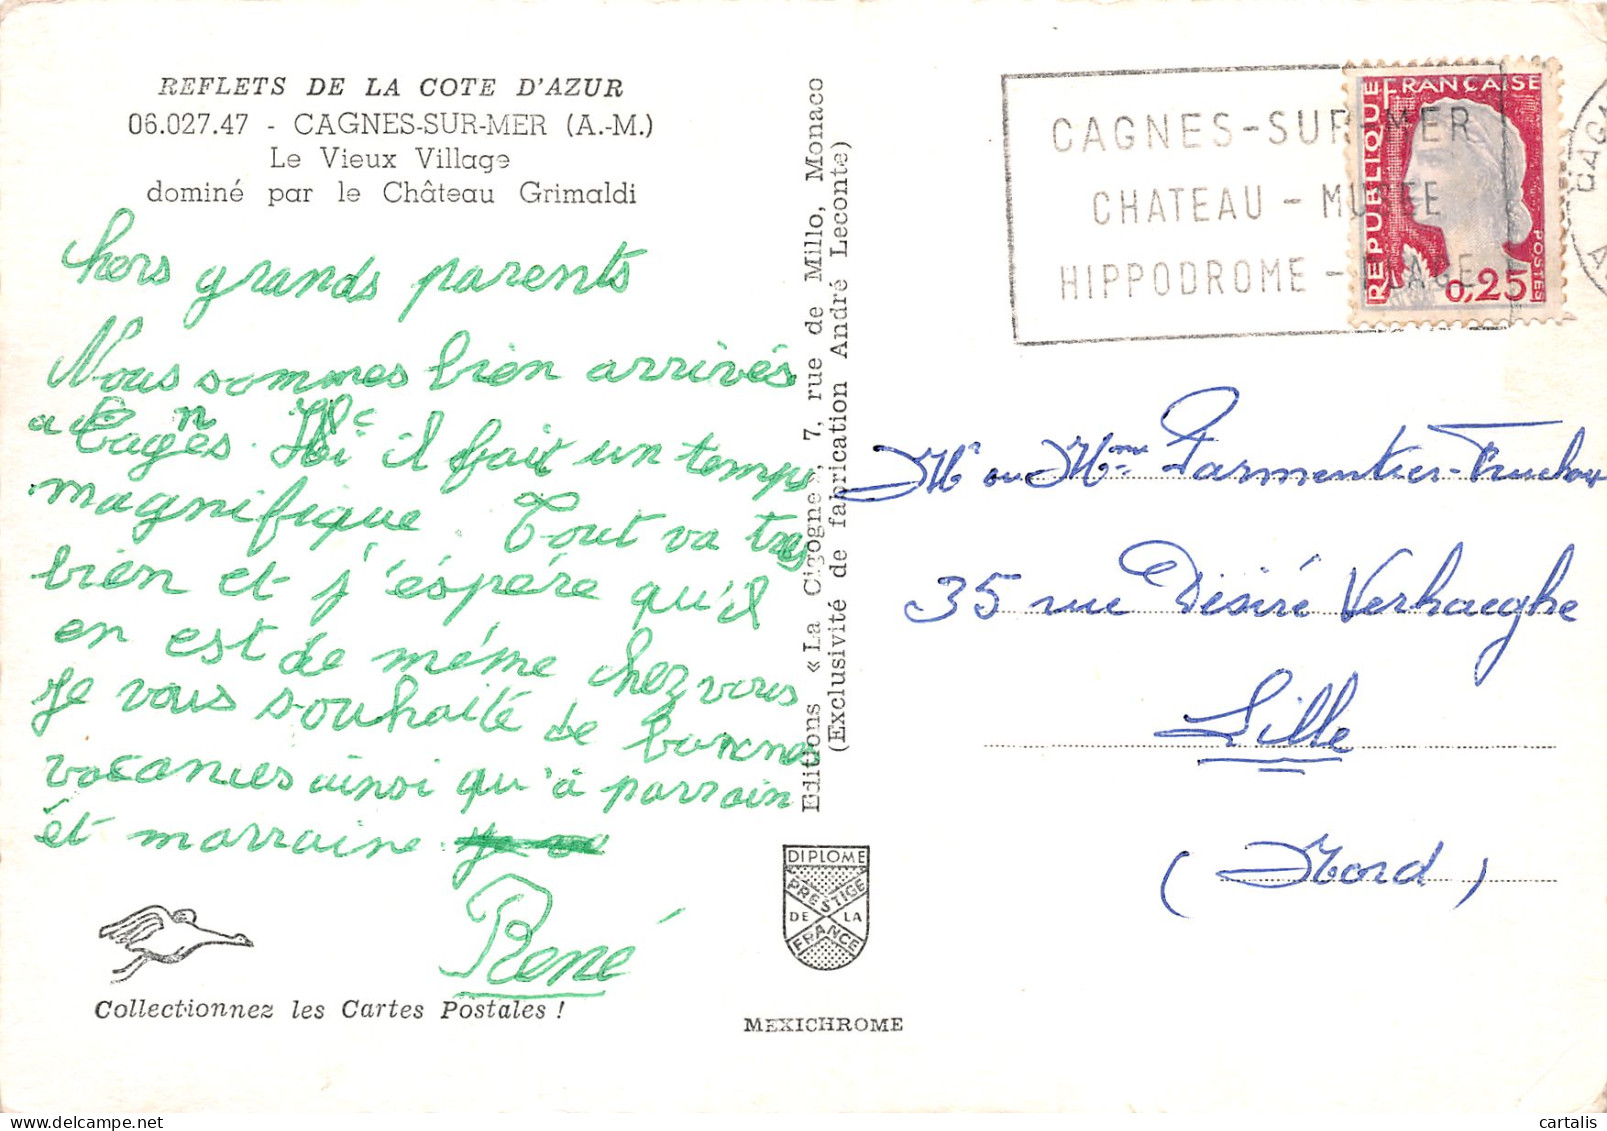 REFLETS DE LA COTE D'AZUR
06.027.47 - CAGNES-SUR-MER (A.-M.)
Le Vieux Village
dominé par le Château Grimaldi
hers grands parents
Nous sommes bien arrivés
a Cagnes. Ici il fait un temps
magnifique. Tout va tres
bien et j'éspére qu'il
en est de méme chez vous
je vous souhaité de bonne
vacances ainsi qu'à parrain
ét marraine
René
Collectionnez les Cartes Postales !
Editions « La Cigogne », 7, rue de Millo, Monaco
(Exclusivité de fabrication André Leconte)
DIPLOME
PRESTIGE
DE LA
FRANCE
MEXICHROME
CAGNES-SUR-MER
CHATEAU - MUSEE
HIPPODROME - PLAGE
REPUBLIQUE FRANÇAISE
POSTES
0,25
Mr ou Mme Parmentier-
35 rue Désiré Verhaeghe
Lille
(Nord)
cartalis